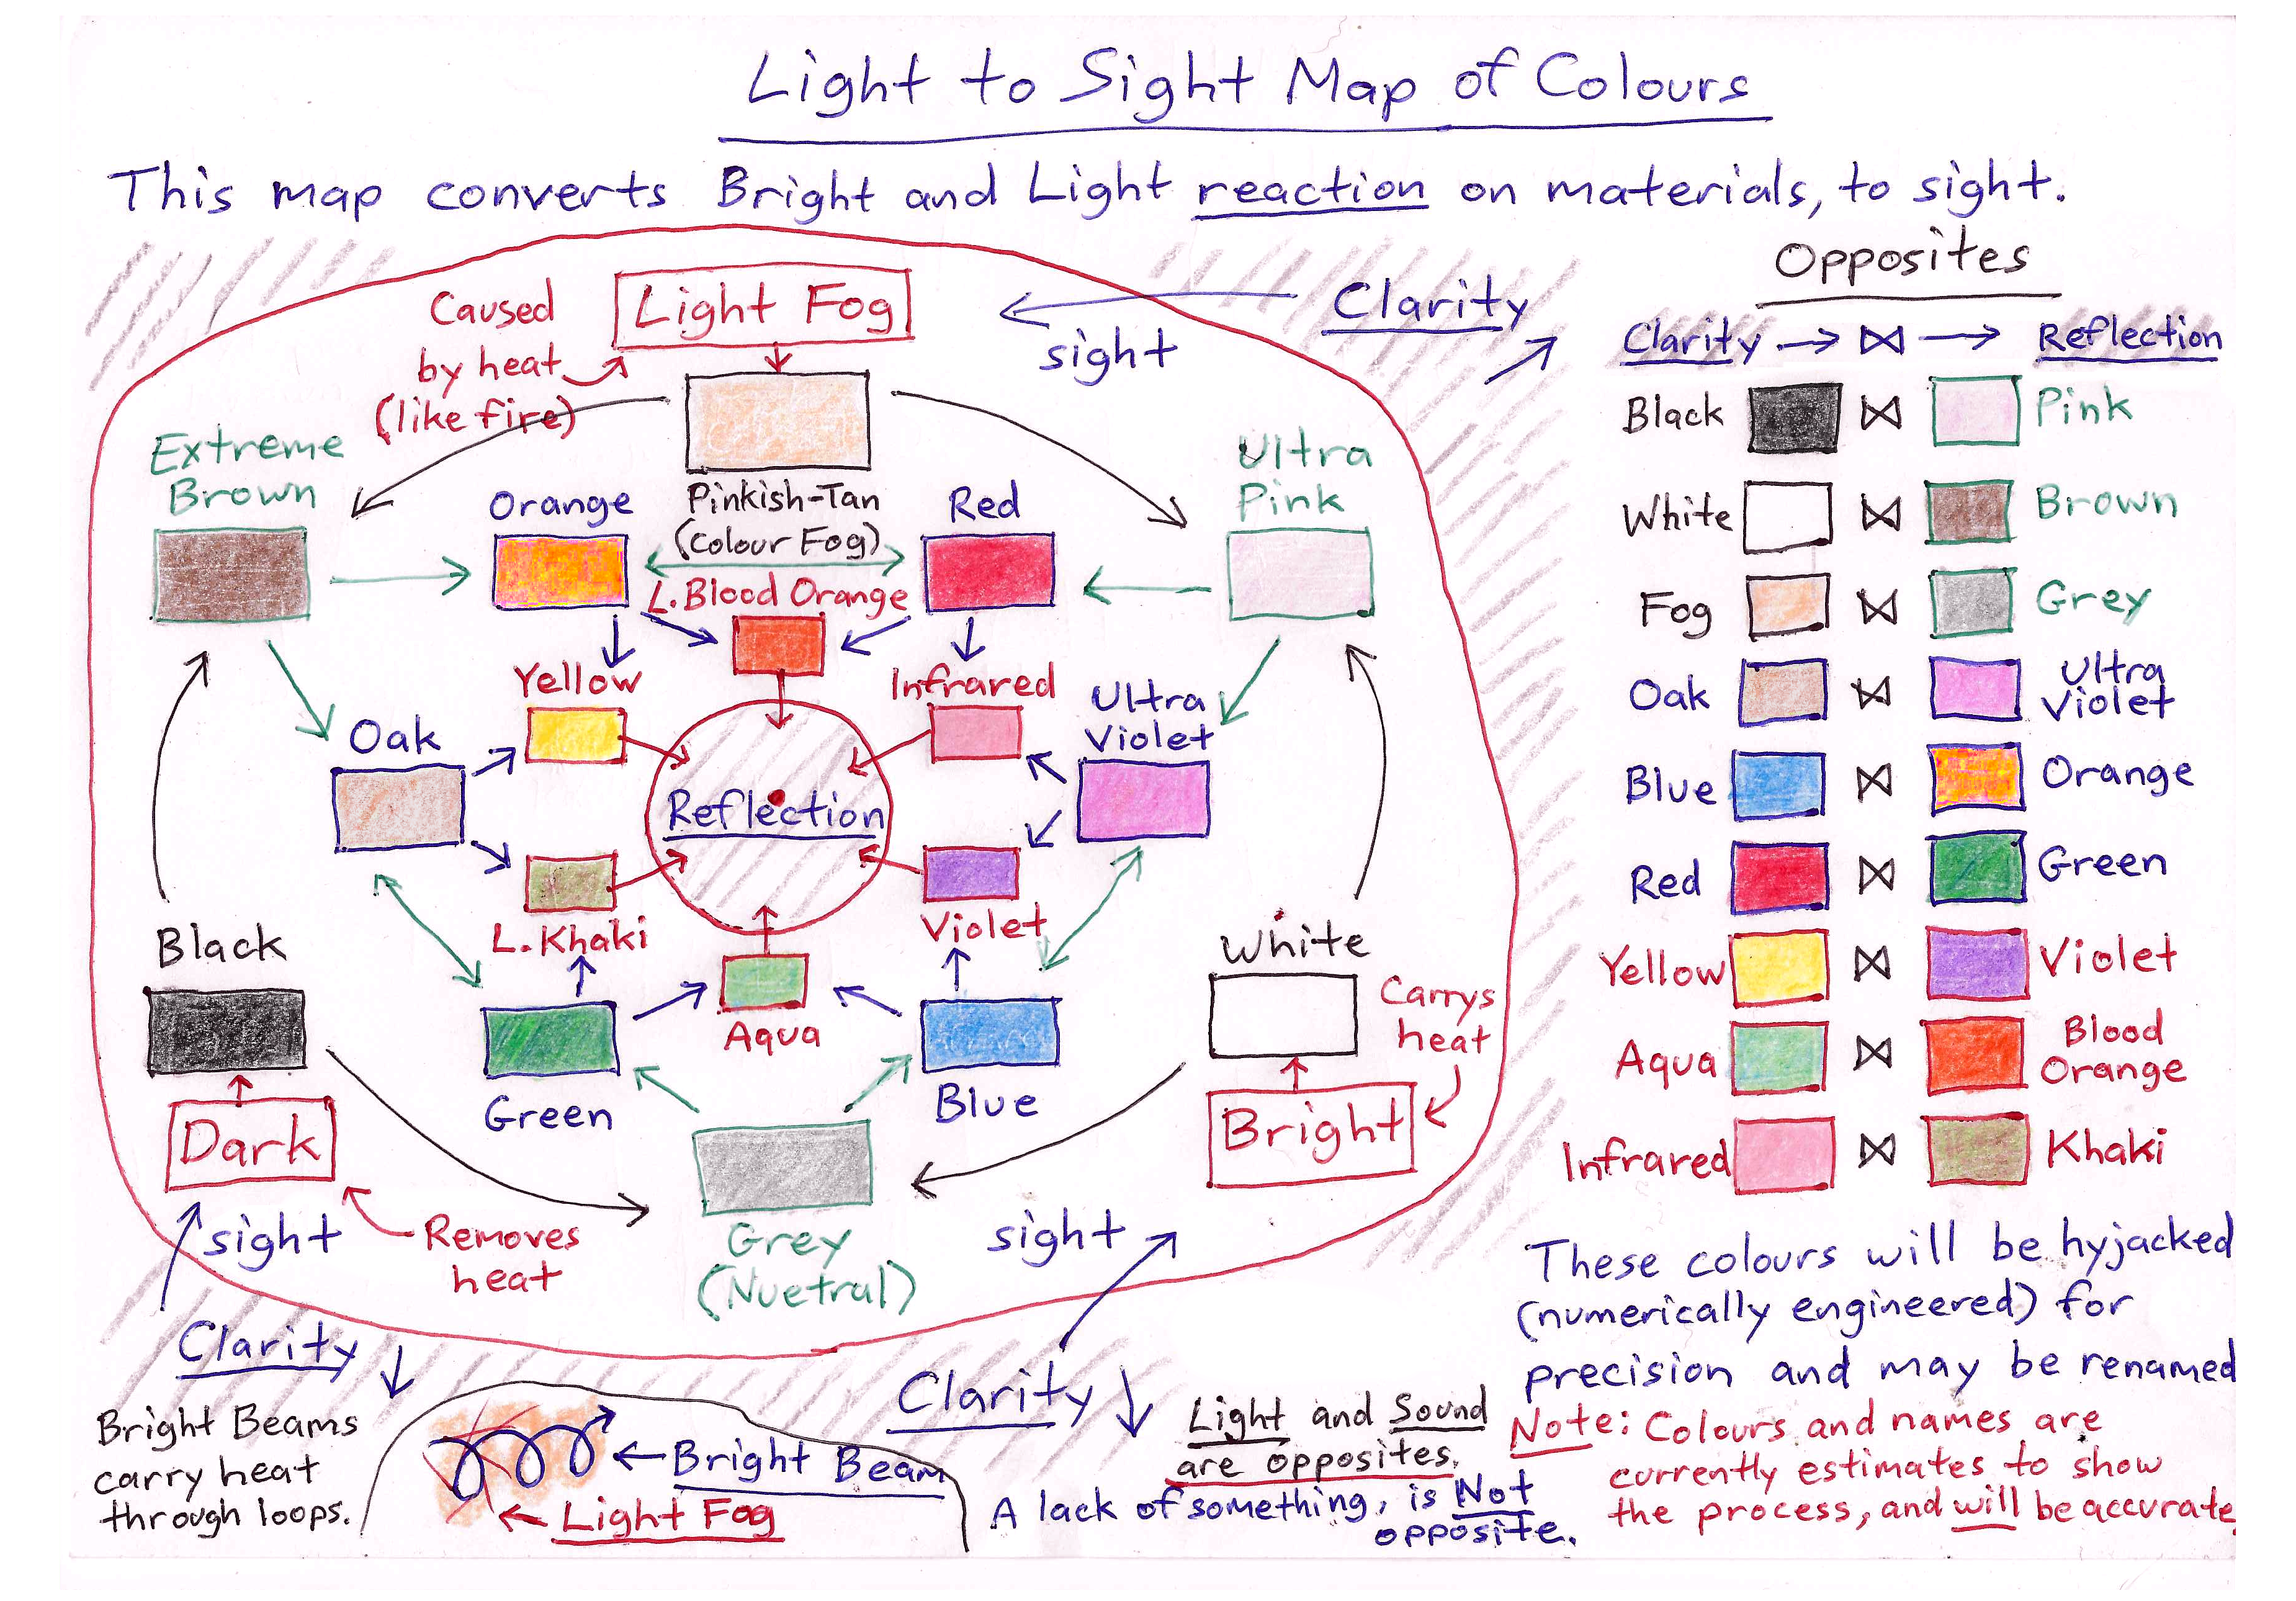 Light to Sight Map of Colours
This map converts Bright and Light reaction on materials, to sight.
Caused
by heat
(like fire)
Light Fog
sight
Clarity
Extreme
Brown
Orange
Pinkish-Tan
(Colour Fog)
Red
Ultra
Pink
L. Blood Orange
Yellow
Infrared
Ultra
Violet
Oak
Reflection
L. Khaki
Violet
Black
White
Carrys
heat
Aqua
Green
Blue
Dark
Bright
sight
Removes
heat
Grey
(Nuetral)
sight
Clarity
Clarity
Bright Beams
carry heat
through loops.
Bright Beam
Light Fog
Light and Sound
are opposites.
A lack of something, is Not
opposite.
Opposites
Clarity → ⋈ → Reflection
Black ⋈ Pink
White ⋈ Brown
Fog ⋈ Grey
Oak ⋈ Ultra
Violet
Blue ⋈ Orange
Red ⋈ Green
Yellow ⋈ Violet
Aqua ⋈ Blood
Orange
Infrared ⋈ Khaki
These colours will be hyjacked
(numerically engineered) for
precision and may be renamed
Note: Colours and names are
currently estimates to show
the process, and will be accurate.